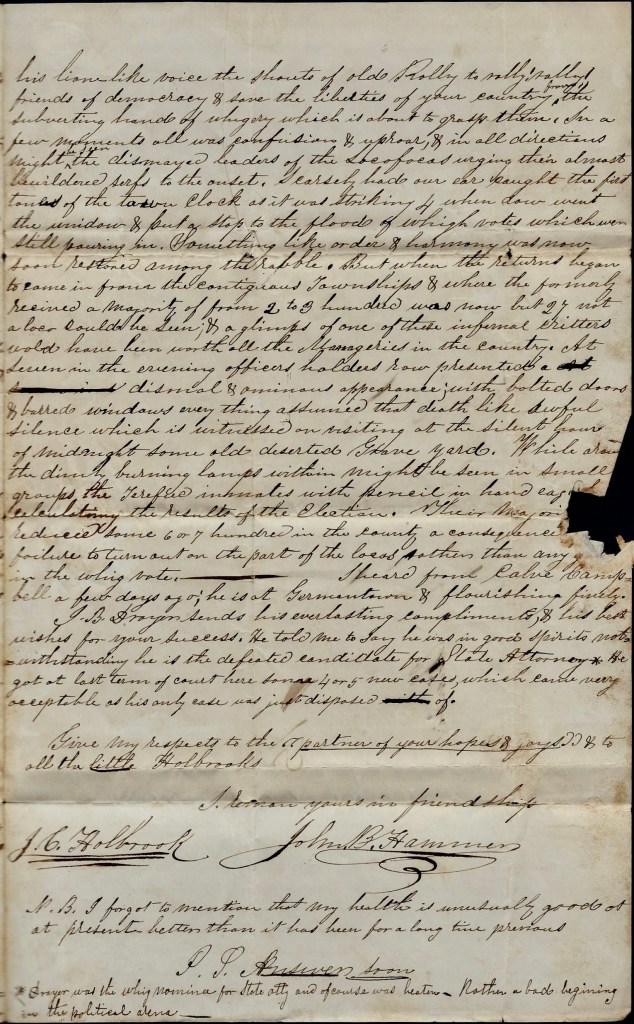 his lione like voice the shouts of old Rolly to rally, rally!
friends of democracy & save the liberties of your country from the
subverting hand of whigory which is about to grasp them. In a
few moments all was confusion & uproar, & in all directions
might be seen the dismayed leaders of the Locofocos urging their almost
bewildered serfs to the onset. Scarsely had our ear caught the first
tones of the town Clock as it was stricking 4 when down went
the window & put a stop to the flood of whigh votes which were
still pouring in. Something like order & harmony was now
soon restored among the rabble. But when the returns began
to come in from the contiguous Townships & where the formerly
recieved a majority of from 2 to 3 hundred was now but 27 not
a loco could be seen; & a glimps of one of these infernal critters
wold have been worth all the Manageries in the country. At
Seven in the evening officers holders row presented a
dismal & ominous appearance; with bolted doors
& barred windows every thing assumed that death like awful
silence which is witnessed on visiting at the silent hour
of midnight some old deserted Grave yard. While
the dimly burning lamps within might be seen in small
groups, the Terefied inmates with pencil in hand
calculating the results of the Election. Their
reduced some 6 or 7 hundred in the county a consequence
failure to turn out on the part of the locos rathern than any
in the whig vote. I heard from Calve Camp-
bell a few days ago; he is at Germantown & flourishing finely.
J. B. Drayer sends his everlasting compliments, & his best
wishes for your success. He told me to say he was in good spirits not-
withstanding he is the defeated candidate for State Attorney * He
got at last term of court here some 4 or 5 new cases, which came very
acceptable as his only case was just disposed of.
Give my respects to the partner of your hopes & joys & to
all the little Holbrooks
I reman yours in friendship
J. C. Holbrook John B. Hammer
N. B. I forgot to mention that my health is unusually good at
at present better than it has been for a long time previous
P. S. Answer soon
* Drayer was the whig nominee for state atty and of course was beaten – Rather a bad begining
in the political arena —